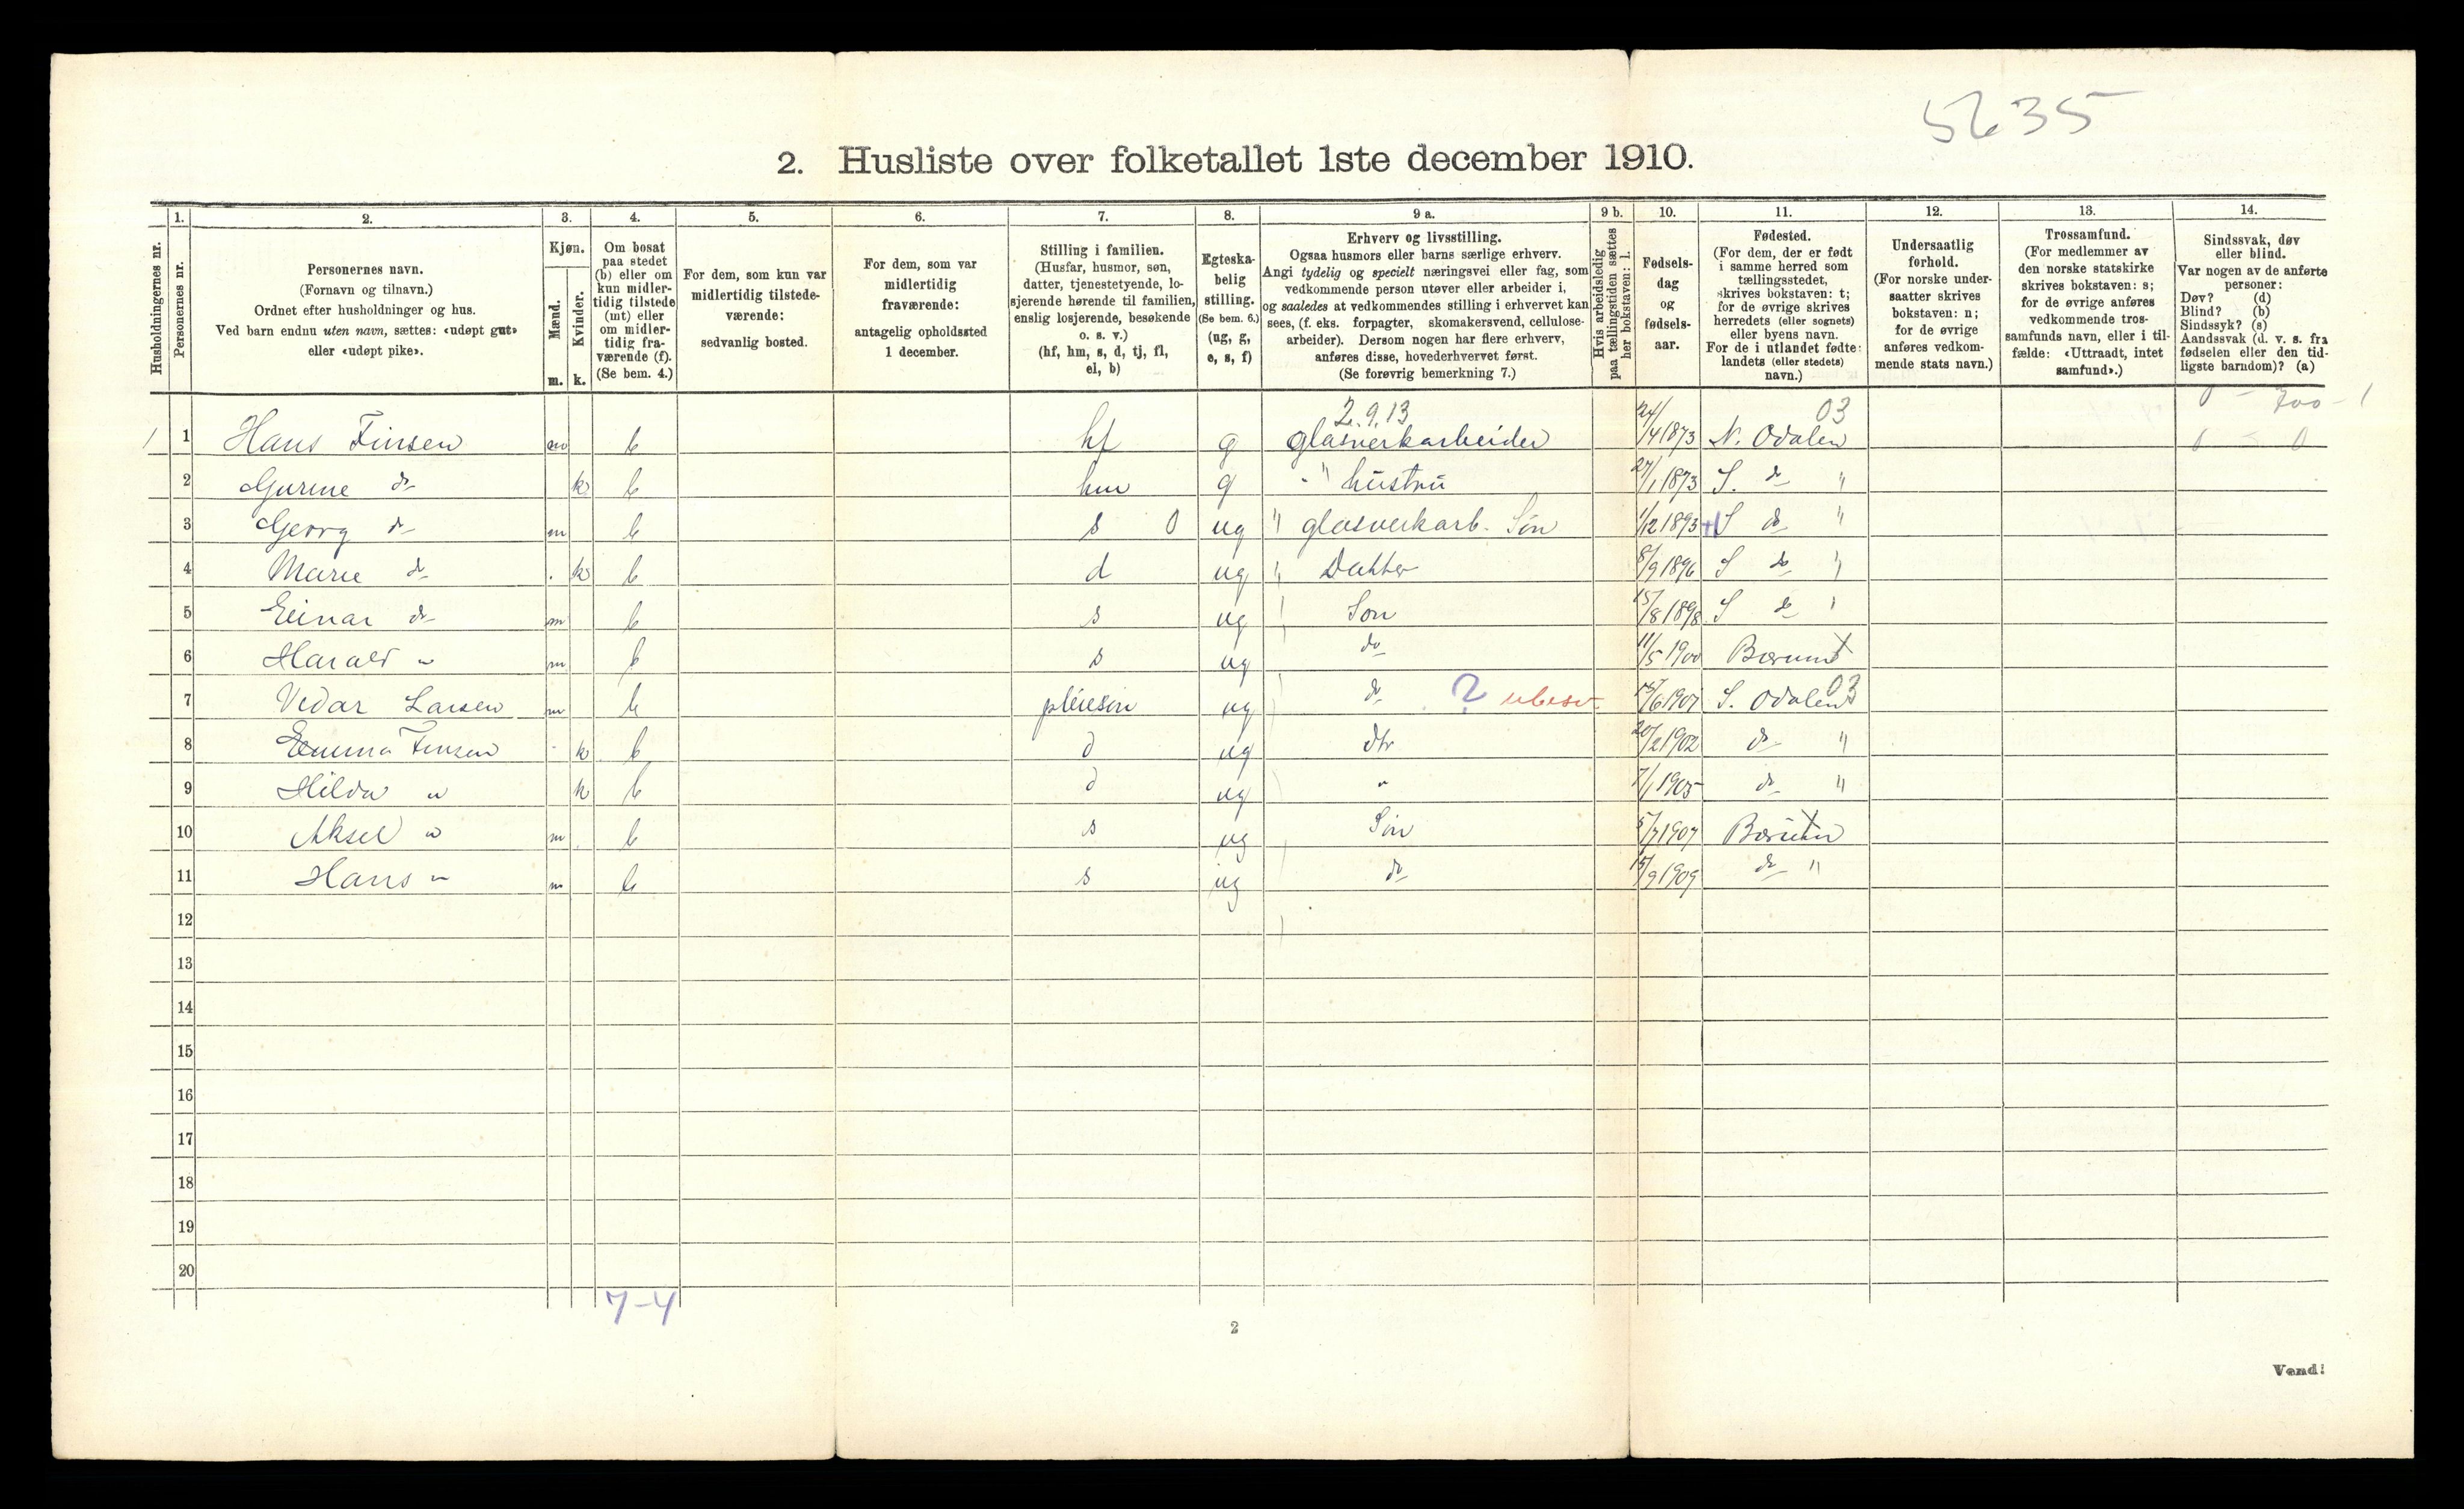 5635
2. Husliste over folketallet 1ste december 1910.
Husholdningernes nr.
1.
Personernes nr.
2.
Personernes navn.
(Fornavn og tilnavn.)
Ordnet efter husholdninger og hus.
Ved barn endnu uten navn, sættes: «udøpt gut»
eller «udøpt pike».
3.
Kjøn.
Mænd.
Kvinder.
m. k.
4.
Om bosat
paa stedet
(b) eller om
kun midler-
tidig tilstede
(mt) eller
om midler-
tidig fra-
værende (f).
(Se bem. 4.)
5.
For dem, som kun var
midlertidig tilstede-
værende:
sedvanlig bosted.
6.
For dem, som var
midlertidig
fraværende:
antagelig opholdssted
1 december.
7.
Stilling i familien.
(Husfar, husmor, søn,
datter, tjenestetyende, lo-
sjerende hørende til familien,
enslig losjerende, besøkende
o. s. v.)
(hf, hm, s, d, tj, fl,
el, b)
8.
Egteska-
belig
stilling.
(Se bem. 6.)
(ug, g,
e, s, f)
9 a.
Erhverv og livsstilling.
Ogsaa husmors eller barns særlige erhverv.
Angi tydelig og specielt næringsvei eller fag, som
vedkommende person utøver eller arbeider i,
og saaledes at vedkommendes stilling i erhvervet kan
sees, (f. eks. forpagter, skomakersvend, cellulose-
arbeider). Dersom nogen har flere erhverv,
anføres disse, hovederhvervet først.
(Se forøvrig bemerkning 7.)
9 b.
Hvis arbeidsledig
paa tællingstiden sættes
her bokstaven: l.
10.
Fødsels-
dag
og
fødsels-
aar.
11.
Fødested.
(For dem, der er født
i samme herred som
tællingsstedet,
skrives bokstaven: t;
for de øvrige skrives
herredets (eller sognets)
eller byens navn.
For de i utlandet fødte:
landets (eller stedets)
navn.)
12.
Undersaatlig
forhold.
(For norske under-
saatter skrives
bokstaven: n;
for de øvrige
anføres vedkom-
mende stats navn.)
13.
Trossamfund.
(For medlemmer av
den norske statskirke
skrives bokstaven: s;
for de øvrige anføres
vedkommende tros-
samfunds navn, eller i til-
fælde: «Uttraadt, intet
samfund».)
14.
Sindssvak, døv
eller blind.
Var nogen av de anførte
personer:
Døv? (d)
Blind? (b)
Sindssyk? (s)
Aandssvak (d. v. s. fra
fødselen eller den tid-
ligste barndom)? (a)
2.9.13 03 0 - 700 - 1
1 1 Hans Finsen m b hf g glasverkarbeider 24/4 1873 N. Odalen
2 Gurine do k b hm g " hustru 27/1 1873 S. do "
3 Georg do m b s 0 ug " glasverkarb. Søn 1/12 1893 S do "
4 Marie do k b d ug " Datter 8/9 1896 S do "
5 Einar do m b s ug Søn 15/8 1898 S do "
6 Harald " m b s ug do 11/5 1900 Bærum t
7 Vedar Larsen m b pleiesøn ug do ? ubesv 15/6 1907 S. Odalen 03
8 Emma Finsen k b d ug dtr 20/2 1902 do "
9 Hilda " k b d ug " 7/1 1905 do "
10 Aksel " m b s ug Søn 5/7 1907 Bærum
11 Hans " m b s ug do 15/9 1909 do "
12
13
14
15
16
17
18
19
20
7-4
2
Vend!